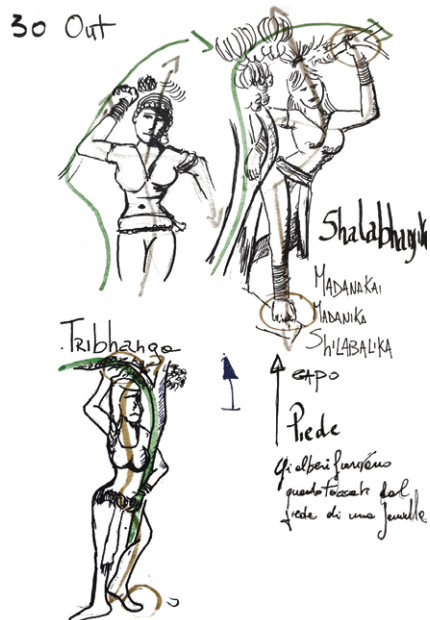 30 Out
Shalabhanjik
MADANAKAI
MADANIKA
ShiLABALIKA
Tribhanga
CAPO
Piede
Gli alberi
quando toccati dal
piede di una